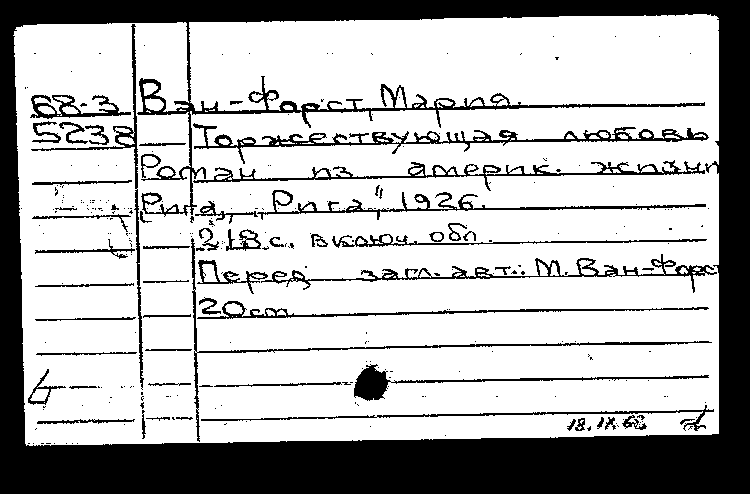 68-3 Ван-Форст, Мария.
5238 Торжествующая любовь.
Роман из америк. жизни
[Рига], "Рига", 1926.
218 с. включ. обл.
Перед загл. авт.: М. Ван-Форст
20 cm
18.IX.68